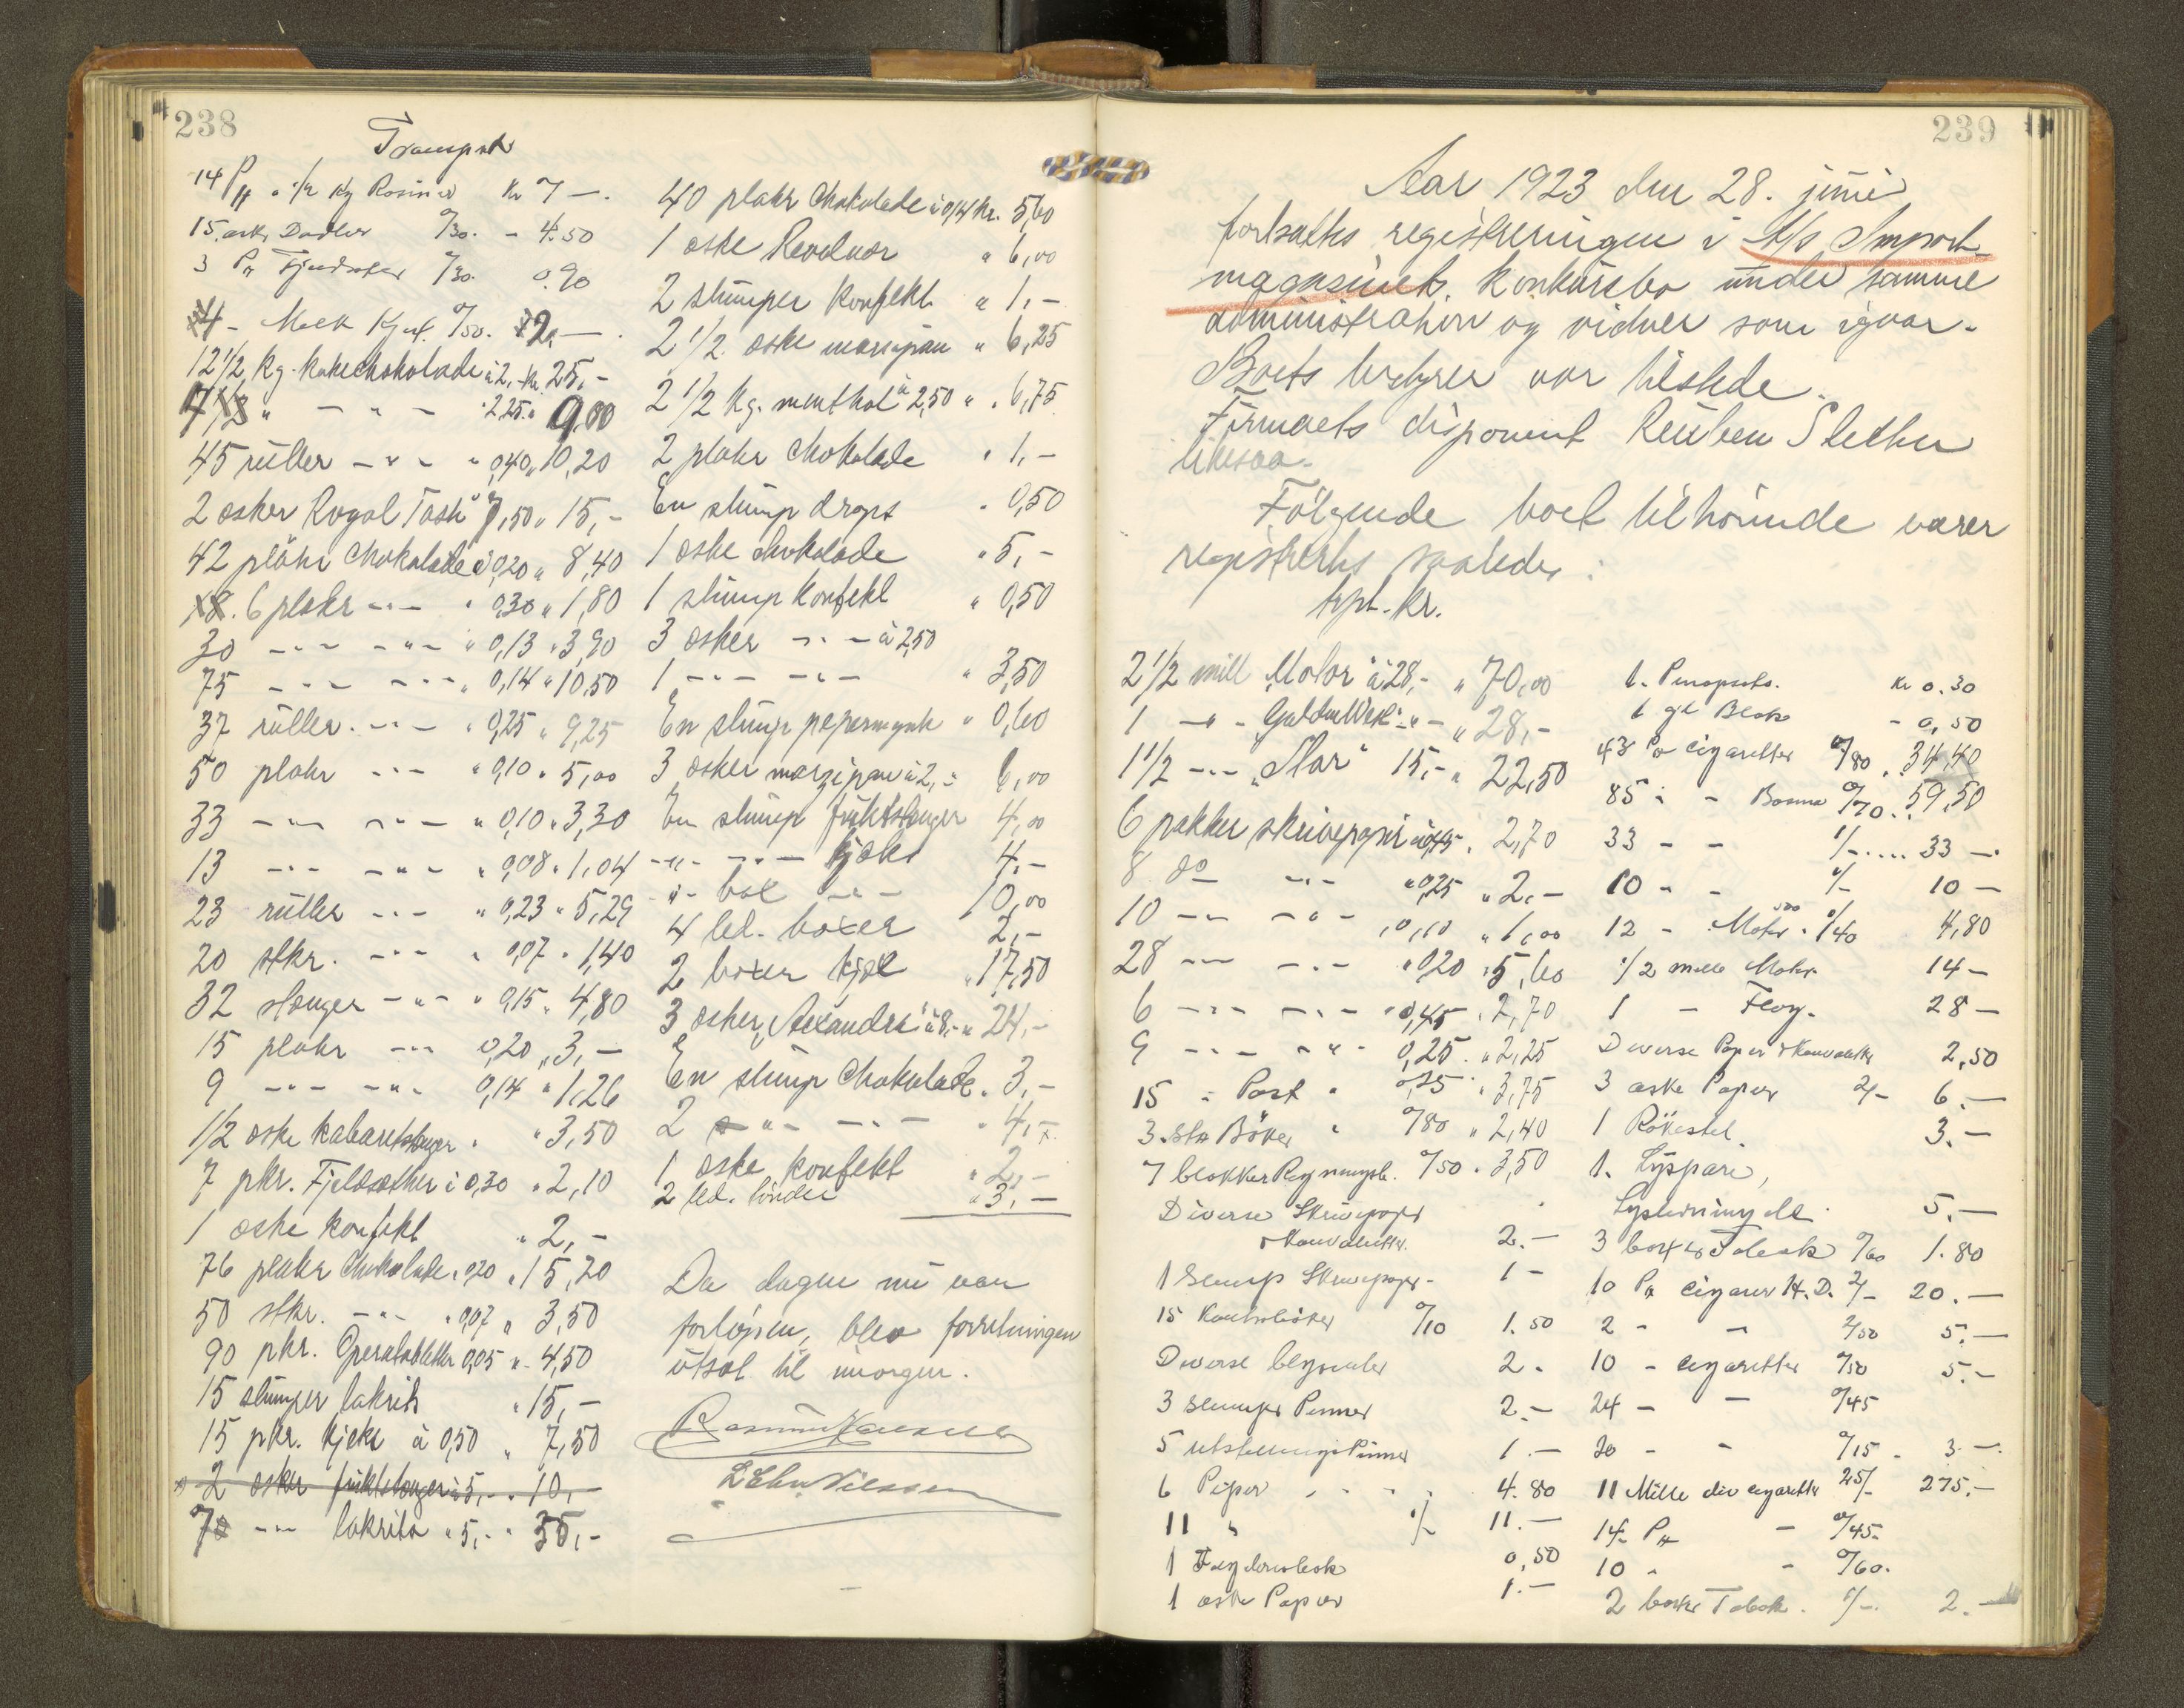 238
Transport
14 Pk a 1/2 kg Rosiner Kr 7 —.
15 æsk. Dadler 0/30. - 4.50
3 Pk 0/30. 0.90
4 - Melk 0/50. 2,—.
12 1/2 kg. kakechokolade à 2,- Kr. 25,-
" - " - " 2.25 " 9,00
45 ruller - " - " 0,40 " 10,20
2 esker Royal Task " 7,50 " 15,-
42 plater chokolade à 0,20 " 8,40
6 plater - " - " 0,30 " 1,80
30 - " - - " - " 0,13 " 3,90
75 - " - - " - " 0,14 " 10,50
37 ruller. - " - " 0,25 " 9,25
50 plater - " - " 0,10 " 5,00
33 - " - - " - " 0,10 " 3,30
13 - " - - " - " 0,08 " 1,04
23 ruller - " - " 0,23 " 5,29
20 stkr. - " - " 0,07 " 1,40
32 stenger - " - " 0,15 " 4,80
15 plater - " - 0,20 " 3,-
9 - " - - " - 0,14 " 1,26
1/2 eske kabaretstenger " " 3,50
7 pkr. Fjeldsæther à 0,30 " 2,10
1 eske konfekt " 2,-
76 plater chokolade " 0,20 " 15,20
50 stkr. - " - " 0,07 " 3,50
90 pkr. Operatabletter 0,05 " 4,50
15 slumper lakrits " 15,-
15 pkr. kjeks à 0,50 " 7,50
2 esker fruktstenger à 5,- " 10,-
7 - " - lakrits " 5,- " 35,-
40 plater chokolade à 0,14 kr. 5,60
1 eske Revolver " 6,00
2 slumper konfekt " 1,-
2 1/2 eske marsipan " 6,25
2 1/2 kg. menthol à 2,50 " 6,75
2 plater chokolade " 1,-
En slump drops " 0,50
1 eske chokolade " 5,-
1 slump konfekt " 0,50
3 esker - " - à 2,50
1 - " - - " - " 3,50
En slump pepermynte " 0,60
3 esker marzipan à 2,- " 6,00
En slump fruktstenger 4,00
- " - - " - kjeks 4,-
- " - - " - 10,00
4 led. boxer 2,-
2 boxer kjeks " 17,50
3 esker Alexandra à 8,- " 24,-
En slump chokolade " 3,-
2 - " - - " - " 4,-
1 eske konfekt " 2,-
2 led. " 3,-
Da dagen nu var
forløpen, blev forretningen
utsat til imorgen.
Rasmus Hansen
239
Aar 1923 den 28. juni
fortsattes registreringen i A/s Import-
magasinet. konkursbo under samme
administration og vidner som igaar.
Boets bestyrer var tilstede.
Firmaets disponent Reuben Slethen
likesaa.
Følgende boet tilhørende varer
registrertes saaledes:
trpt. kr.
2 1/2 mill "Motor" à 28,- " 70,00
1 - " - "Golden West" - " - " 28,-
1 1/2 - " - "Star" 15,- " 22,50
6 pakker skrivepapir à 0,45 " 2,70
8 do - " - " 0,25 " 2,-
10 - " - - " - " 0,10 " 1,00
28 - " - - " - " 0,20 " 5,60
6 - " - - " - " 0,45 " 2,70
9 - " - - " - 0,25 " 2,25
15 " Post " 0,25 " 3,75
3 Stk Bøker " 0/80 " 2,40
7 blokker 0/50 " 3,50
Diverse Skrivepapir
& Konvolutter. 2.—
1 Slump Skrivepapir - 1 -
15 Kontobøker 0/10 1.50
Diverse blyanter 2.
3 slumper Penner 2.—
5 Utstillings Penner 1.—
6 Piper 4.80
11 " 1/- 11.—
1 0,50
1 eske Papir 1.—
1. Kr 0.30
1 gl Blæk - 0,50
43 Pk cigaretter 0/80 " 34,40
85 " - 0/70 " 59,50
33 - - 1/- .... 33 —.
10 - - 1/- 10 —
12 - Motor 0/40 4,80
1/2 mille Motor 14 —
1 - Flag. 28 —
Diverse Papir & Konvolutter 2,50
3 æske Papir 2/- 6.—
1 Røkestel. 3.—
1. Lyspære,
5.—
3 bokser Tobak 0/60 1.80
10 Pk cigarer H.D. 2/- 20.—
2 - - 2/50 5.—
10 - cigaretter 0/50 5.—
24 - - 0/45
20 - - 0/15 - 3.—
11 Mille div cigaretter 25/- 275.—
14 Pk - 0/45.
10 " - 0/60.
2 bokser Tobak. 1/-. 2.—